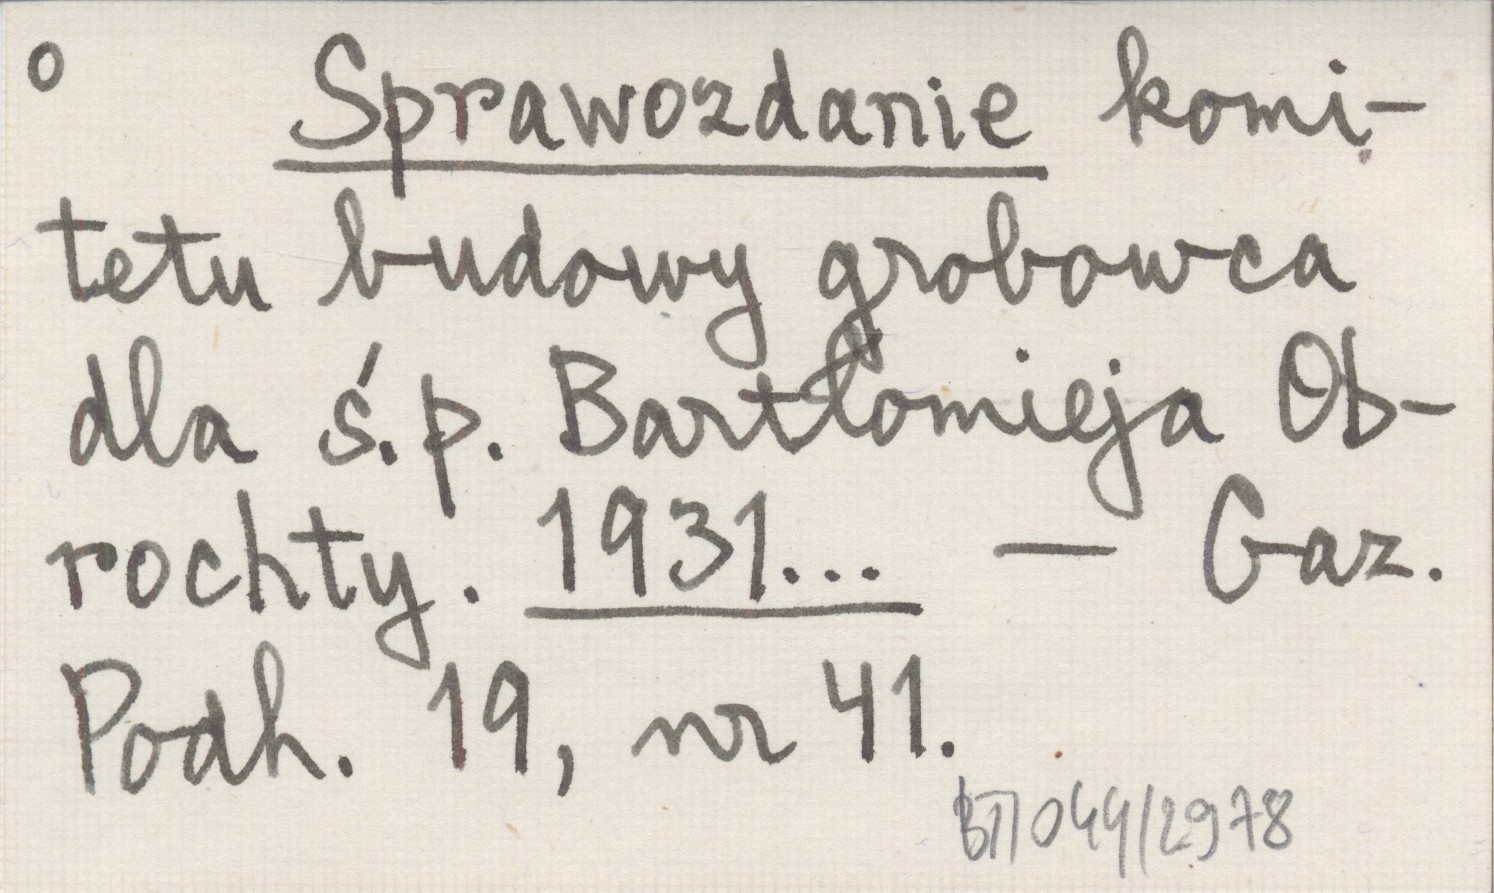 o Sprawozdanie komi-
tetu budowy grobowca
dla ś.p. Bartłomieja Ob-
rochty. 1931... — Gaz.
Podh. 19, nr 41.
044/2978